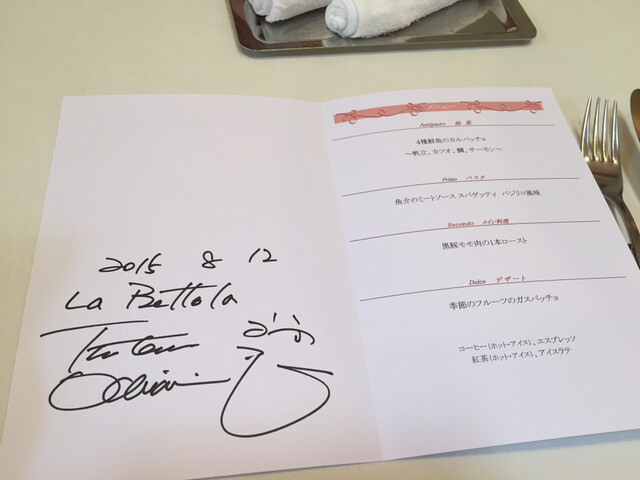 2015 8 12
La Bettola
メニュー
Antipasto 前菜
4種鮮魚のカルパッチョ
～帆立、カツオ、鯛、サーモン～
Primo パスタ
魚介のミートソース スパゲッティ バジリコ風味
Secondo メイン料理
黒豚モモ肉の1本ロースト
Dolce デザート
季節のフルーツのガスパッチョ
コーヒー(ホット・アイス)、エスプレッソ
紅茶(ホット・アイス)、アイスラテ